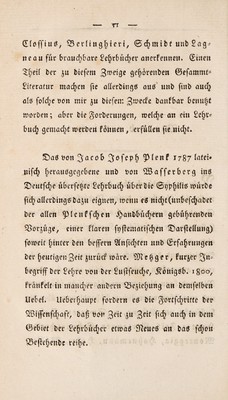 — VI —
Clossius, Berlinghieri, Schmidt und Lag-
neau für brauchbare Lehrbücher anerkennen. Einen
Theil der zu diesem Zweige gehörenden Gesammt-
Literatur machen sie allerdings aus und sind auch
als solche von mir zu diesem Zwecke dankbar benutzt
worden; aber die Forderungen, welche an ein Lehr-
buch gemacht werden können, erfüllen sie nicht.
Das von Jacob Joseph Plenk 1787 latei-
nisch herausgegebene und von Wasserberg ins
Deutsche übersetzte Lehrbuch über die Syphilis würde
sich allerdings dazu eignen, wenn es nicht (unbeschadet
der allen Plenkschen Handbüchern gebührenden
Vorzüge, einer klaren systematischen Darstellung)
soweit hinter den bessern Ansichten und Erfahrungen
der heutigen Zeit zurück wäre. Metzger, kurzer In-
begriff der Lehre von der Lustseuche, Königsb. 1800,
kränkelt in mancher andern Beziehung an demselben
Uebel. Ueberhaupt fordern es die Fortschritte der
Wissenschaft, daß von Zeit zu Zeit sich auch in dem
Gebiet der Lehrbücher etwas Neues an das schon
Bestehende reihe.